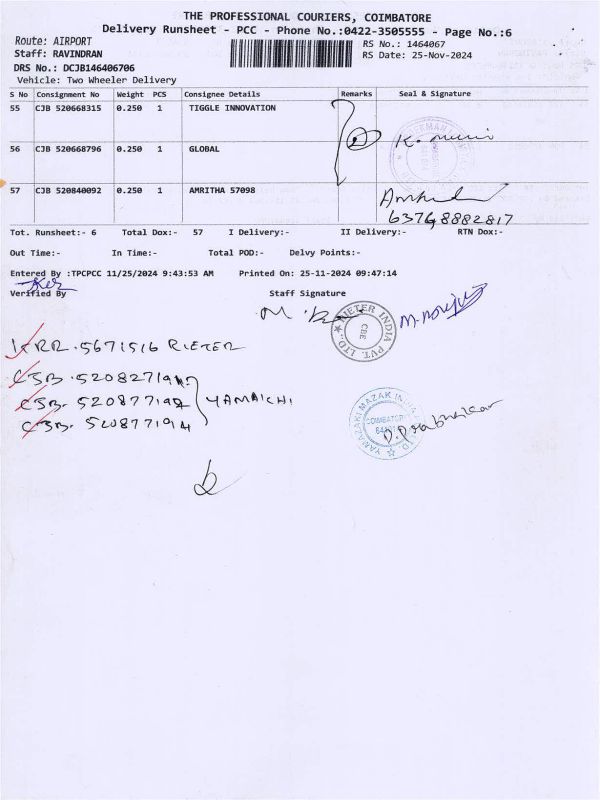 THE PROFESSIONAL COURIERS, COIMBATORE
Delivery Runsheet - PCC - Phone No.:0422-3505555 - Page No.:6
Route: AIRPORT
RS No.: 1464067
Staff: RAVINDRAN
RS Date: 25-Nov-2024
DRS No.: DCJB146406706
Vehicle: Two Wheeler Delivery
S No Consignment No Weight PCS Consignee Details Remarks Seal & Signature
55 CJB 520668315 0.250 1 TIGGLE INNOVATION
56 CJB 520668796 0.250 1 GLOBAL
57 CJB 520840092 0.250 1 AMRITHA 57098
Tot. Runsheet:- 6 Total Dox:- 57 I Delivery:- II Delivery:- RTN Dox:-
Out Time:- In Time:- Total POD:- Delvy Points:-
Entered By :TPCPCC 11/25/2024 9:43:53 AM Printed On: 25-11-2024 09:47:14
Verified By Staff Signature
RIETER INDIA PVT. LTD. CBE
KRR. 5671516 RIETER
YAMAICHI
YAMAZAKI MAZAK INDIA
COIMBATORE
D. Prabhakar